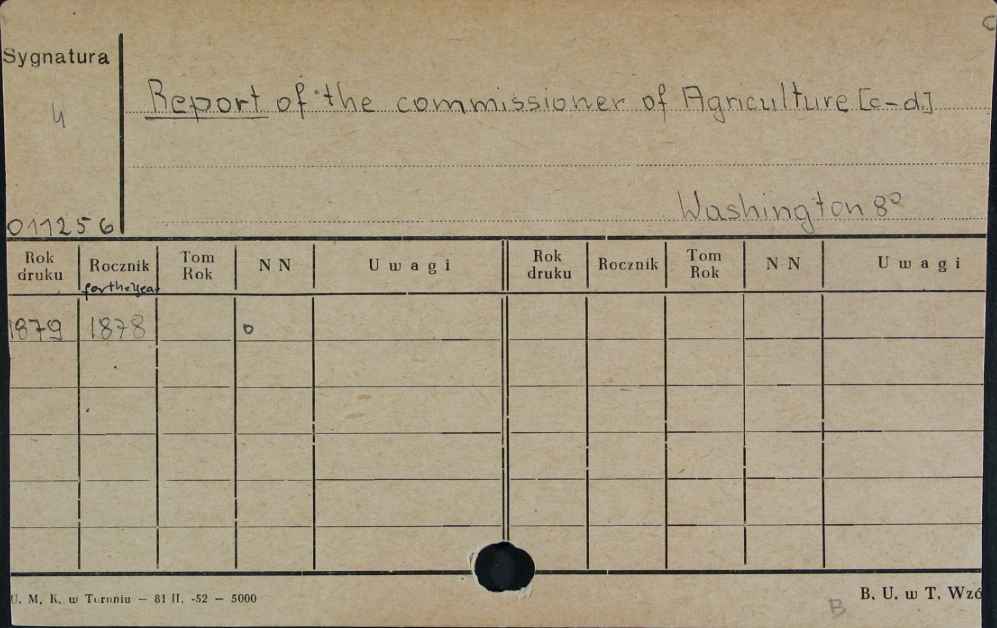 C
Sygnatura
4
Report of the commissioner of Agriculture [c-d.]
Washington 8°
011256
Rok druku Rocznik Tom Rok N N Uwagi Rok druku Rocznik Tom Rok N N Uwagi
for the year
1879 1878 o
U. M. K. w Toruniu — 81 II. -52 — 5000
B. U. w T. Wzó
B